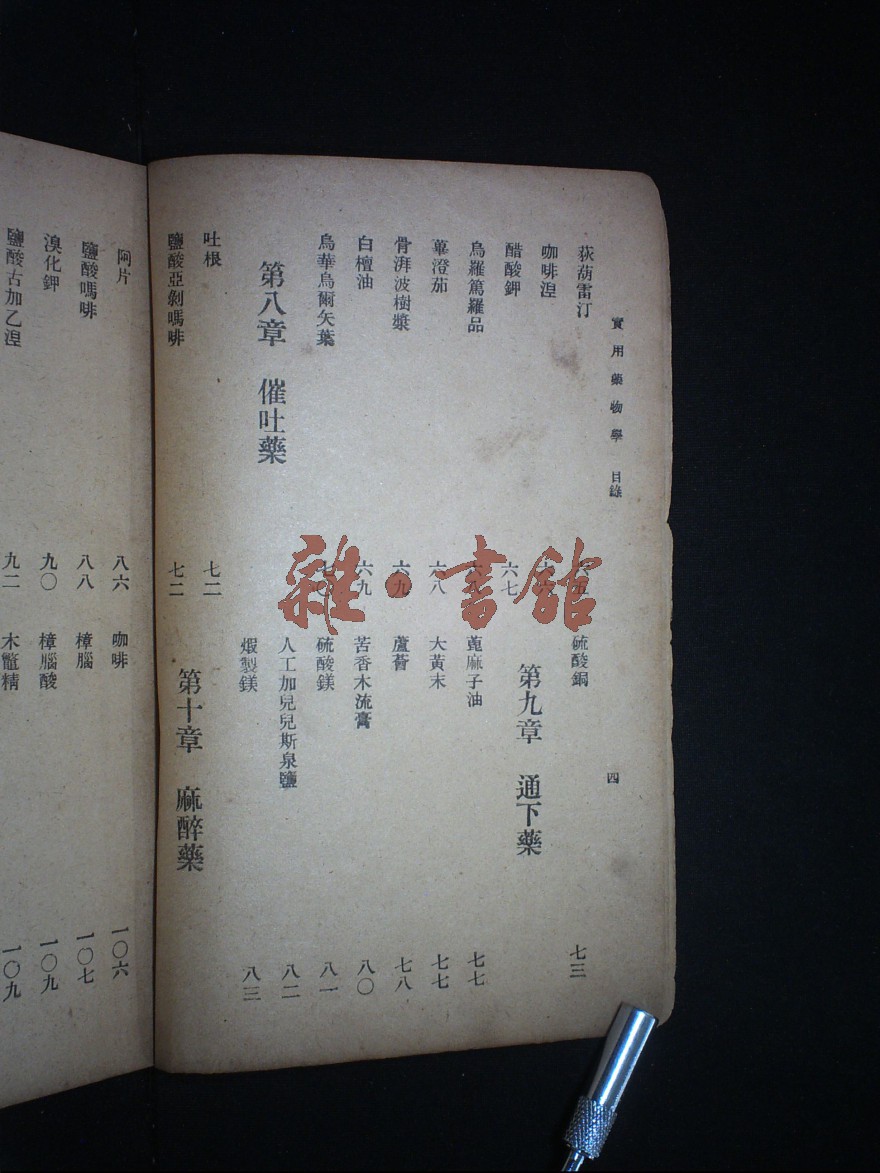 實用藥物學 目錄
四
荻葫雷汀
咖啡湼
醋酸鉀 六七
烏羅篤羅品
蓽澄茄 六八
骨湃波樹漿 六九
白檀油 六九
烏華烏爾矢葉
第八章 催吐藥
吐根 七二
鹽酸亞剝嗎啡 七二
硫酸銅 七三
第九章 通下藥
蓖麻子油 七七
大黃末 七七
蘆薈 七八
苦香木流膏 八〇
硫酸鎂 八一
人工加兒兒斯泉鹽 八二
煆製鎂 八三
第十章 麻醉藥
阿片 八六
鹽酸嗎啡 八八
溴化鉀 九〇
鹽酸古加乙湼 九二
咖啡 一〇六
樟腦 一〇七
樟腦酸 一〇九
木鼈精 一〇九
雜·書館